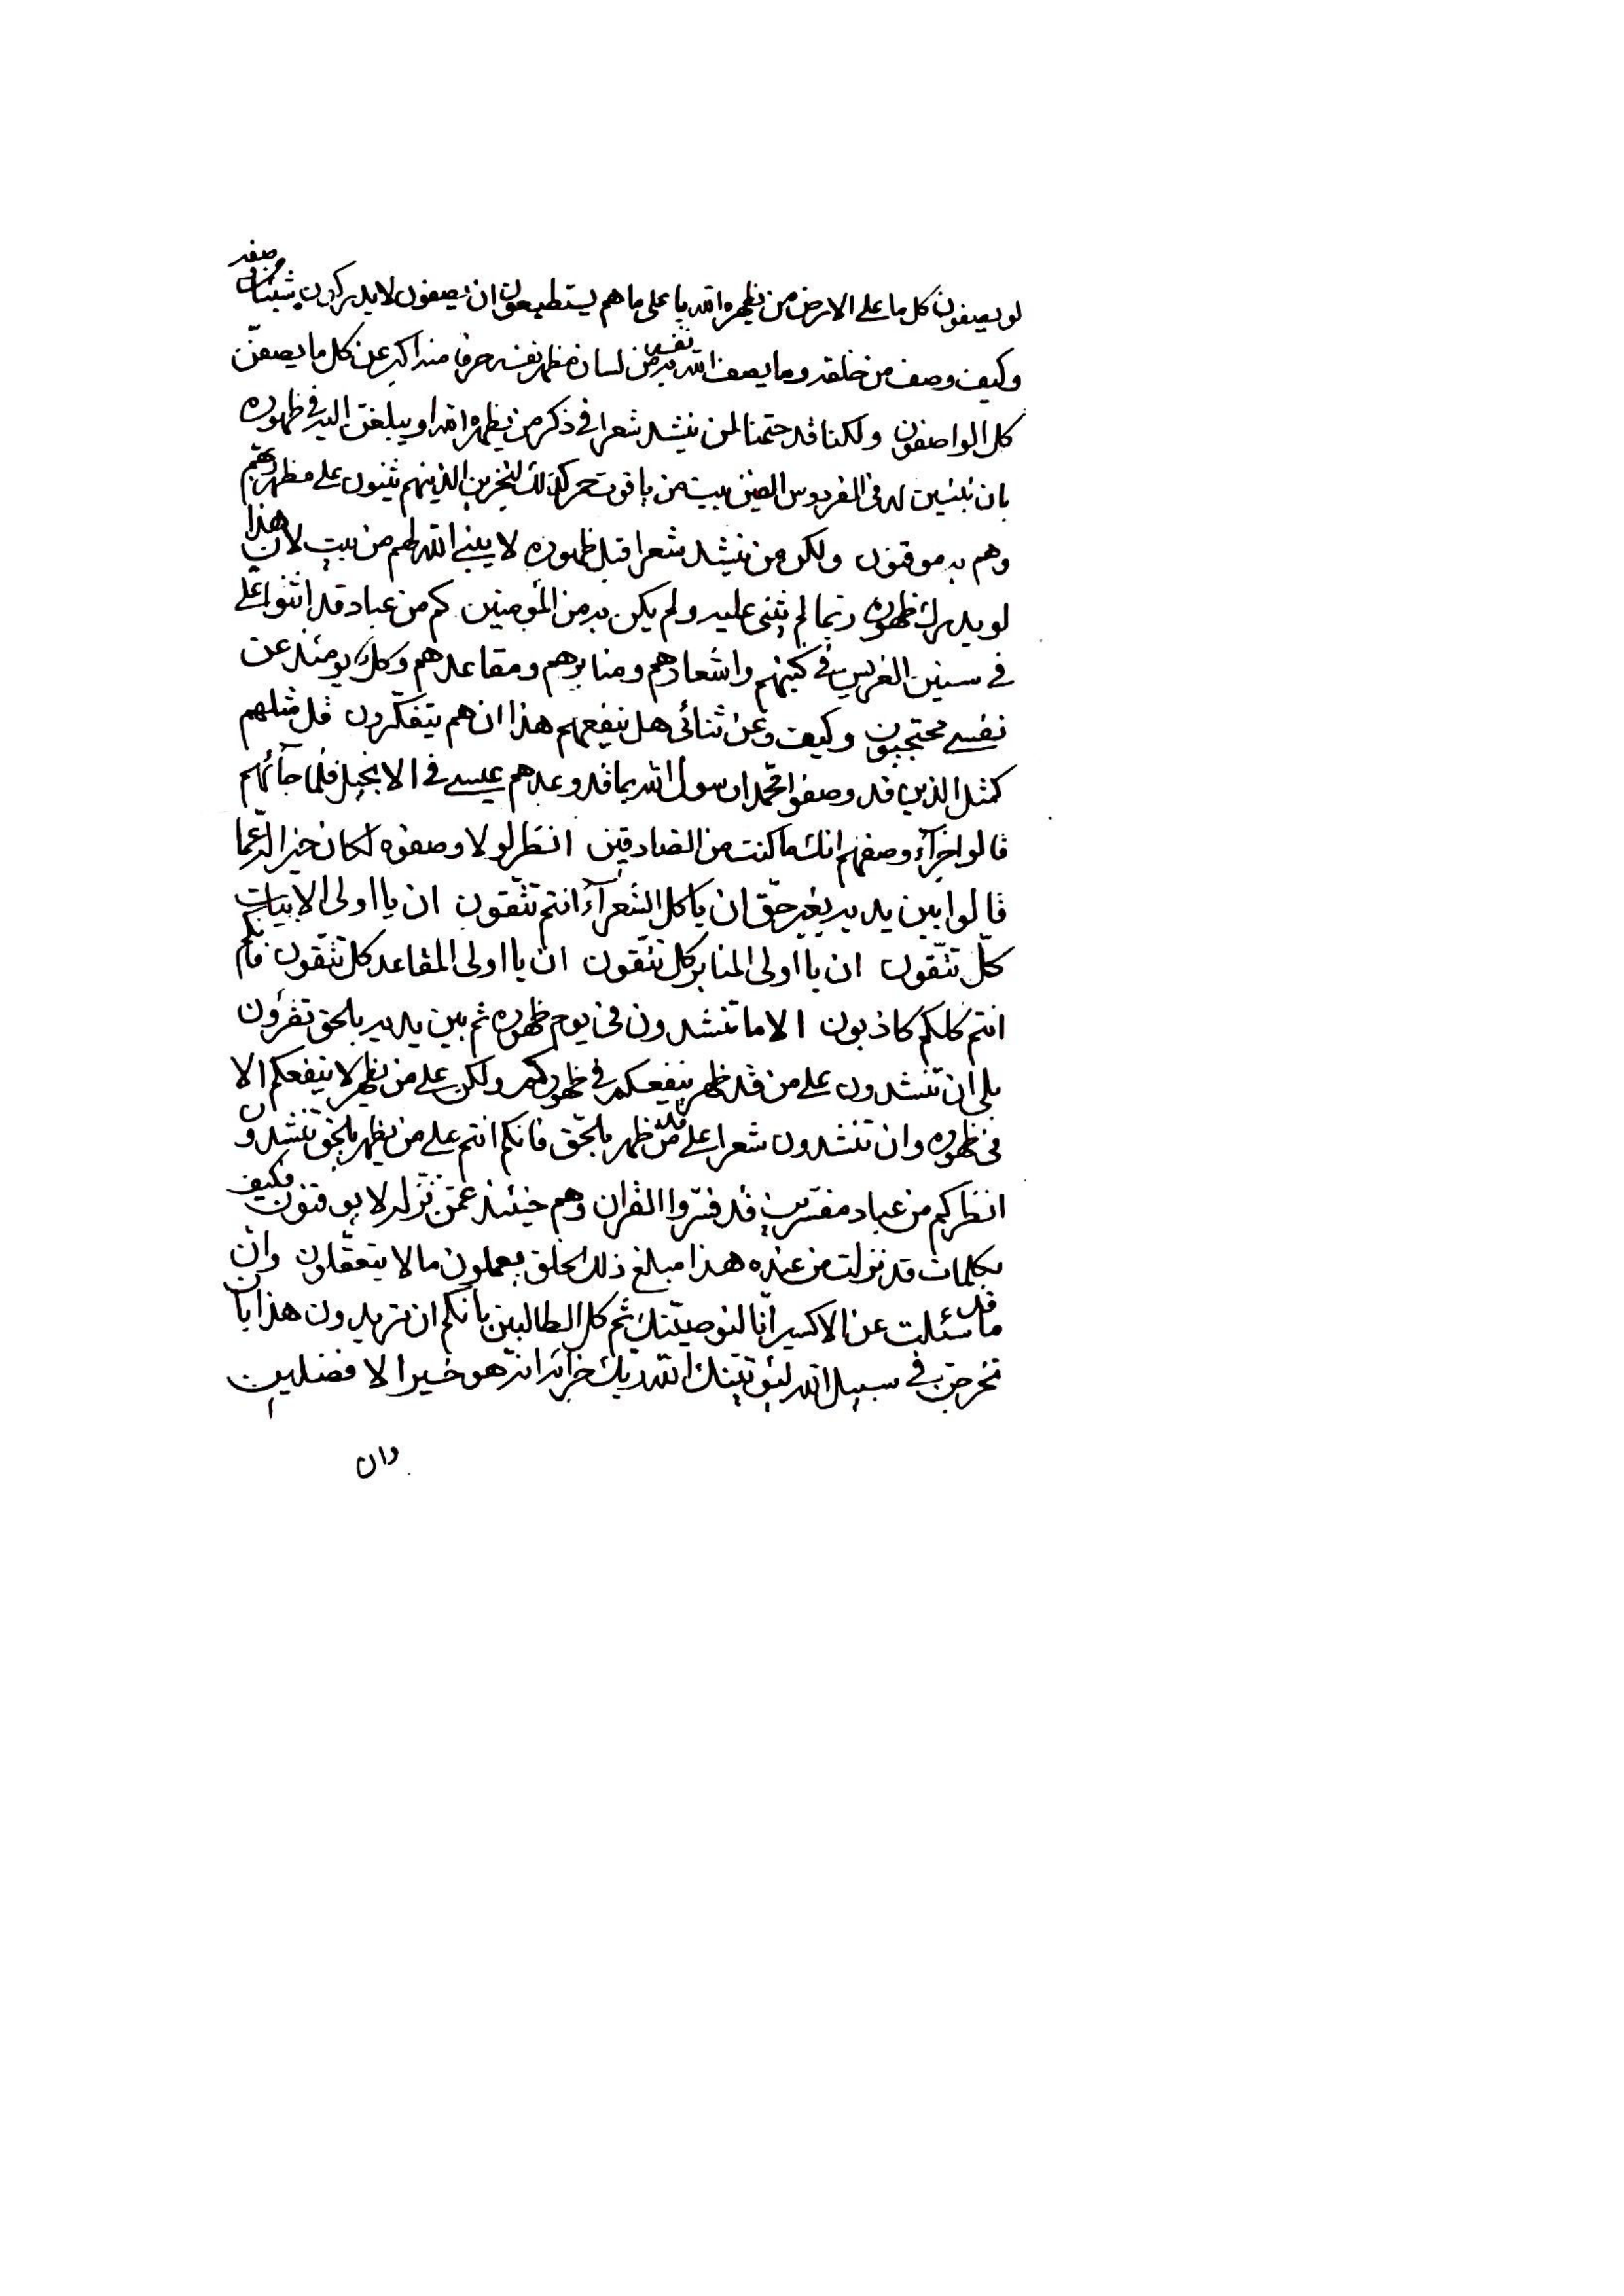 لو يصفون كل ما على الارض من يظهره الله باعلى ما هم يستطيعون ان يصفون لا يدركون شيئا من وصفه
وكيف وصف من خلقه وما يصف الله به نفسه من لسان مظهر نفسه حرفا منه اكبر عن كل ما يصفن
كل الواصفون ولكنا قد حتمنا لمن ينشد شعرا في ذكر من يظهره الله او يبلغن اليه في ظهوره
بان نبنين له في الفردوس بيت من ياقوت حمر كذلك لنجزين الذينهم يثنون على مظهر ربهم
وهم به موقنون ولكن من ينشد شعرا قبل ظهوره لا يبني الله لهم من بيت لان هذا
لو يدرك ظهوره ربما لم يثنى عليه ولم يكن به من المؤمنين كم من عباد قد اثنوا على
في سنين الغرس في كتبهم واشعارهم ومنابرهم ومقاعدهم وكل يومئذ عن
نفسي محتجبون وكيف وعن ثنائى هل ينفعهم هذا ان هم يتفكرون قل مثلهم
كمثل الذين قد وصفوا محمدا رسول الله بما قد وعدهم عيسى في الانجيل فلما جآئهم
قالوا جزآء وصفهم انك ما كنت من الصادقين انظر لو لا وصفوه لكان خيرا له عما
قالوا بين يديه بغير حق ان يا كل الشعرآء انتم تتقون ان يا اولى الابيات
كل تتقون ان يا اولى المنابر كل تتقون ان يا اولى المقاعد كل تتقون فانكم
انتم كلكم كاذبون الا ما تنشدون في يوم ظهوره ثم بين يديه بالحق تقرؤن
بلى ان تنشدون على من قد ظهر ينفعكم في ظهوركم ولكن على من يظهر لا ينفعكم الا
في ظهوره وان تنشدون شعرا على من قد ظهر بالحق فانكم انتم على من يظهر بالحق تنشدون
انظر كم من عباد مفسرين قد فسروا القران وهم حينئذ عمن نزله لا يوقنون فكيف
بكلمات قد نزلت من عنده هذا مبلغ ذلك الخلق يعملون ما لا يتعقلون وان
ما قد سئلت عن الاكسير انا لنوصينك ثم كل الطالبين بانكم ان تريدون هذا بان
تخرجن في سبيل الله ليؤتينك الله ربك جزائه انه هو خير الافضلين
وان